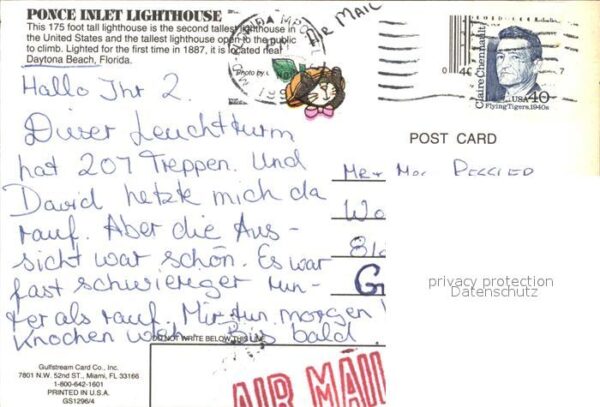 PONCE INLET LIGHTHOUSE
This 175 foot tall lighthouse is the second tallest lighthouse in
the United States and the tallest lighthouse open to the public
to climb. Lighted for the first time in 1887, it is located near
Daytona Beach, Florida.
Photo by
AIR MAIL
Claire Chennault
Flying Tigers, 1940s
USA 40
POST CARD
Hallo Ihr 2.
Dieser Leuchtturm
hat 207 Treppen. Und
David hetzte mich da
rauf. Aber die Aus-
sicht war schön. Es war
fast schwieriger run-
ter als rauf. Mir tun morgen
Knochen weh. Bis bald.
Mr + 
Wo
G
privacy protection
Datenschutz
DO NOT WRITE BELOW THIS LINE
AIR MAIL
Gulfstream Card Co., Inc.
7801 N.W. 52nd ST., Miami, FL 33166
1-800-642-1601
PRINTED IN U.S.A.
GS1296/4